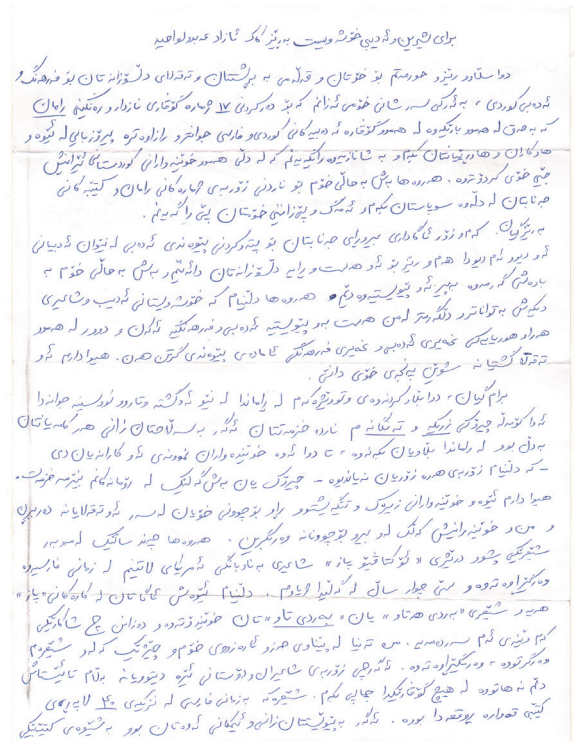 برای شیرین و ئەدیبی خۆشەویست بەڕێز کاک ئازاد عەبدولواحید
دوا سڵاو ڕێز و حورمەتم بۆ خۆتان و قەڵەمی بە بڕشتتان و تەقەلای دڵسۆزانەتان بۆ فەرهەنگ و
ئەدەبی کوردی، بە ئەرکی سەرشانی خۆمی ئەزانم کە بۆ دەرکردنی ١٧ ژمارە گۆڤاری نازدار و ڕەنگینی ڕامان
کە بە حەق لە هەموو بارێکەوە لە هەموو گۆڤارە ئەدەبیەکانی کوردی و فارسی جوانتر و ڕازاوەترە پیرۆزبایی لە ئێوە و
هاوکاران و هاوڕێیانتان بکەم و بە شانازیەوە ڕایگەیەنم کە لە دڵی هەموو خوێنەوارانی کوردستانی ئێرانیش
جێی خۆی کردۆتەوە. هەروەها بەش بە حاڵی خۆم بۆ ناردنی زۆربەی ژمارەکانی ڕامان و کتێبەکانی
جەنابتان لە دڵەوە سوپاستان بکەم و ئەمەگ و پێزانینی خۆمتان پێ ڕابگەیەنم.
بەڕێز گیان. کەم و زۆر ئاگاداری بیروڕای جەنابتان بۆ پتەوکردنی پێوەندی ئەدەبی لە نێوان ئەدیبانی
ئەو دیو و ئەم دیودا هەم و ڕێز بۆ ئەو هەست و ڕایە دڵسۆزانەتان دائەنێم و بەش بە حاڵی خۆم بە
هەروەها دڵنیام کە خۆشەویستانی ئەدیب و شاعیری
دیکەش بە تواناتر و دڵگەرمتر لە من هەست بەو پێویستیە ئەدەبی و فەرهەنگیە ئەکەن و دوور لە هەموو
هەرا و هوریایەکی غەیری ئەدەبی و غەیری فەرهەنگی ئامادەی پێوەندی گرتن هەن. هیوادارم ئەو
تەقەلا گشتیانە شوێن پەنجەی خۆی دانێ.
برام گیان، دوا بڵاوکردنەوەی وتووێژەکەم لە ڕاماندا
ئەوا کۆمەڵە چیرۆکی زریکە و تەنگانەم ناردە خزمەتتان ئەگەر بە سەڵاحتان زانی هەرکامەیانتان
بەدڵ بوو لە ڕاماندا بڵاویان بکەنەوە، تا دوا ئەوە خوێنەواران نموونەی ئەو کارانەیان دی
- کە دڵنیام زۆربەی هەرە زۆریان نەیاندیوە - چیرۆک یان بەشگەلێک لە ڕۆمانەکانم بنێرمە خزمەت.
هیوادارم ئێوە و خوێنەوارانی زیرەک و تێگەیشتوو ڕا و بۆچوونی خۆیان لەسەر ئەو تەقەلایانە دەربڕن
و من و خوێنەرانیش کەڵک لەو بیر و بۆچوونانە وەربگرین. هەروەها چەند ساڵێک لەمەوبەر
شێعرێکی درێژی «ئۆکتاڤیۆ پاز» شاعیری بەناوبانگی ئەمریکای لاتینم لە زمانی فارسیەوە
وەرگێڕاوەتەوە و سێ چوار ساڵ لەگەڵیدا ژیاوم. دڵنیام ئێوەش ئاگاتان لە کارەکانی «پاز»
هەیە و شێعری «بەردی هەتاو» یان «بەردی تاو»تان خوێندۆتەوە و دەزانن چ شاکارێکی
کەم وێنەی ئەم سەردەمەیە. من تەنیا لە پێناوی حەز و ئارەزووی خۆم و چێژێک کە لەو شێعرەم
وەرگرتووە، وەرمگێڕاوەتەوە. ئەگەرچی زۆربەی شاعیران و دۆستانی ئێرە دیتوویانە بەڵام تا ئێستاش
دڵم نەهاتووە لە هیچ گۆڤارێکیدا چاپی بکەم. شێعرەکە بە زمانی فارسی لە نزیکەی ٤٠ لاپەڕەی
کتێبی قەوارە ڕوقعەدا بووە. ئەگەر بە پێویستتان زانی و ئیمکانی ئەوەتان بوو بە شێوەی کتێبێکی